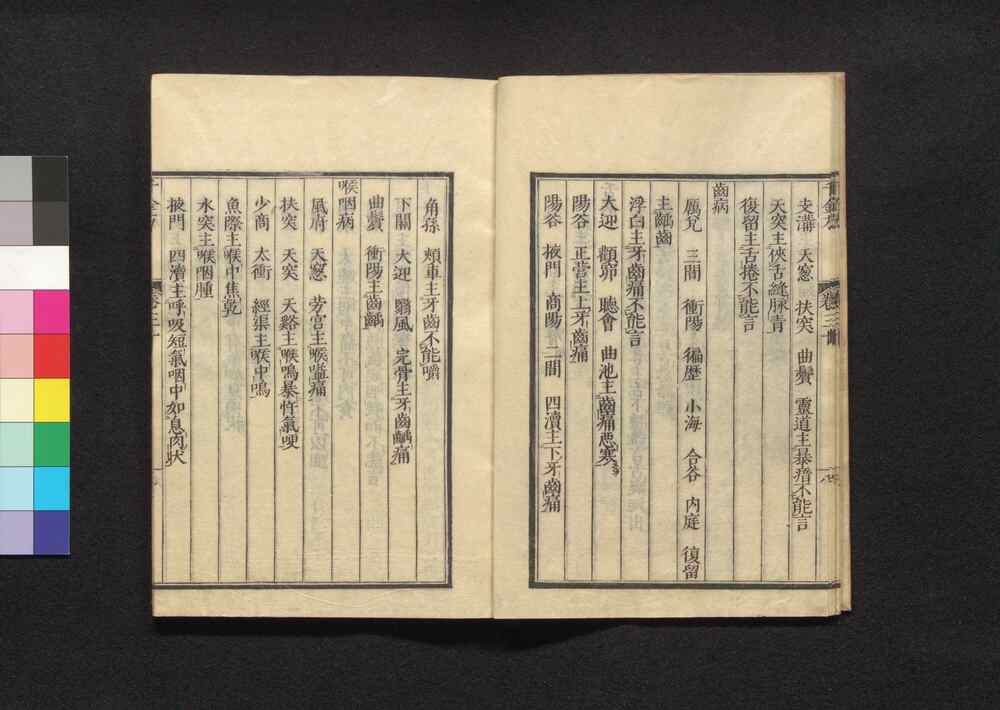 支溝　天窓　扶突　曲鬢　靈道主暴瘖不能言
天突主俠舌縫脉青
復留主舌捲不能言
齒病
厲兌　三間　衝陽　徧歷　小海　合谷　内庭　復留
主齲齒
浮白主牙齒痛不能言
大迎　顴窌　聽會　曲池主齒痛惡寒
陽谷　正營主上牙齒痛
陽谷　掖門　商陽　二間　四瀆主下牙齒痛
角孫　頰車主牙齒不能嚼
下關　大迎　翳風　完骨主牙齒齲痛
曲鬢　衝陽主齒齲
喉咽病
風府　天窓　勞宮主喉嗌痛
扶突　天突　天谿主喉鳴暴忤氣哽
少商　太衝　經渠主喉中鳴
魚際主喉中焦乾
水突主喉咽腫
掖門　四瀆主呼吸短氣咽中如息肉状